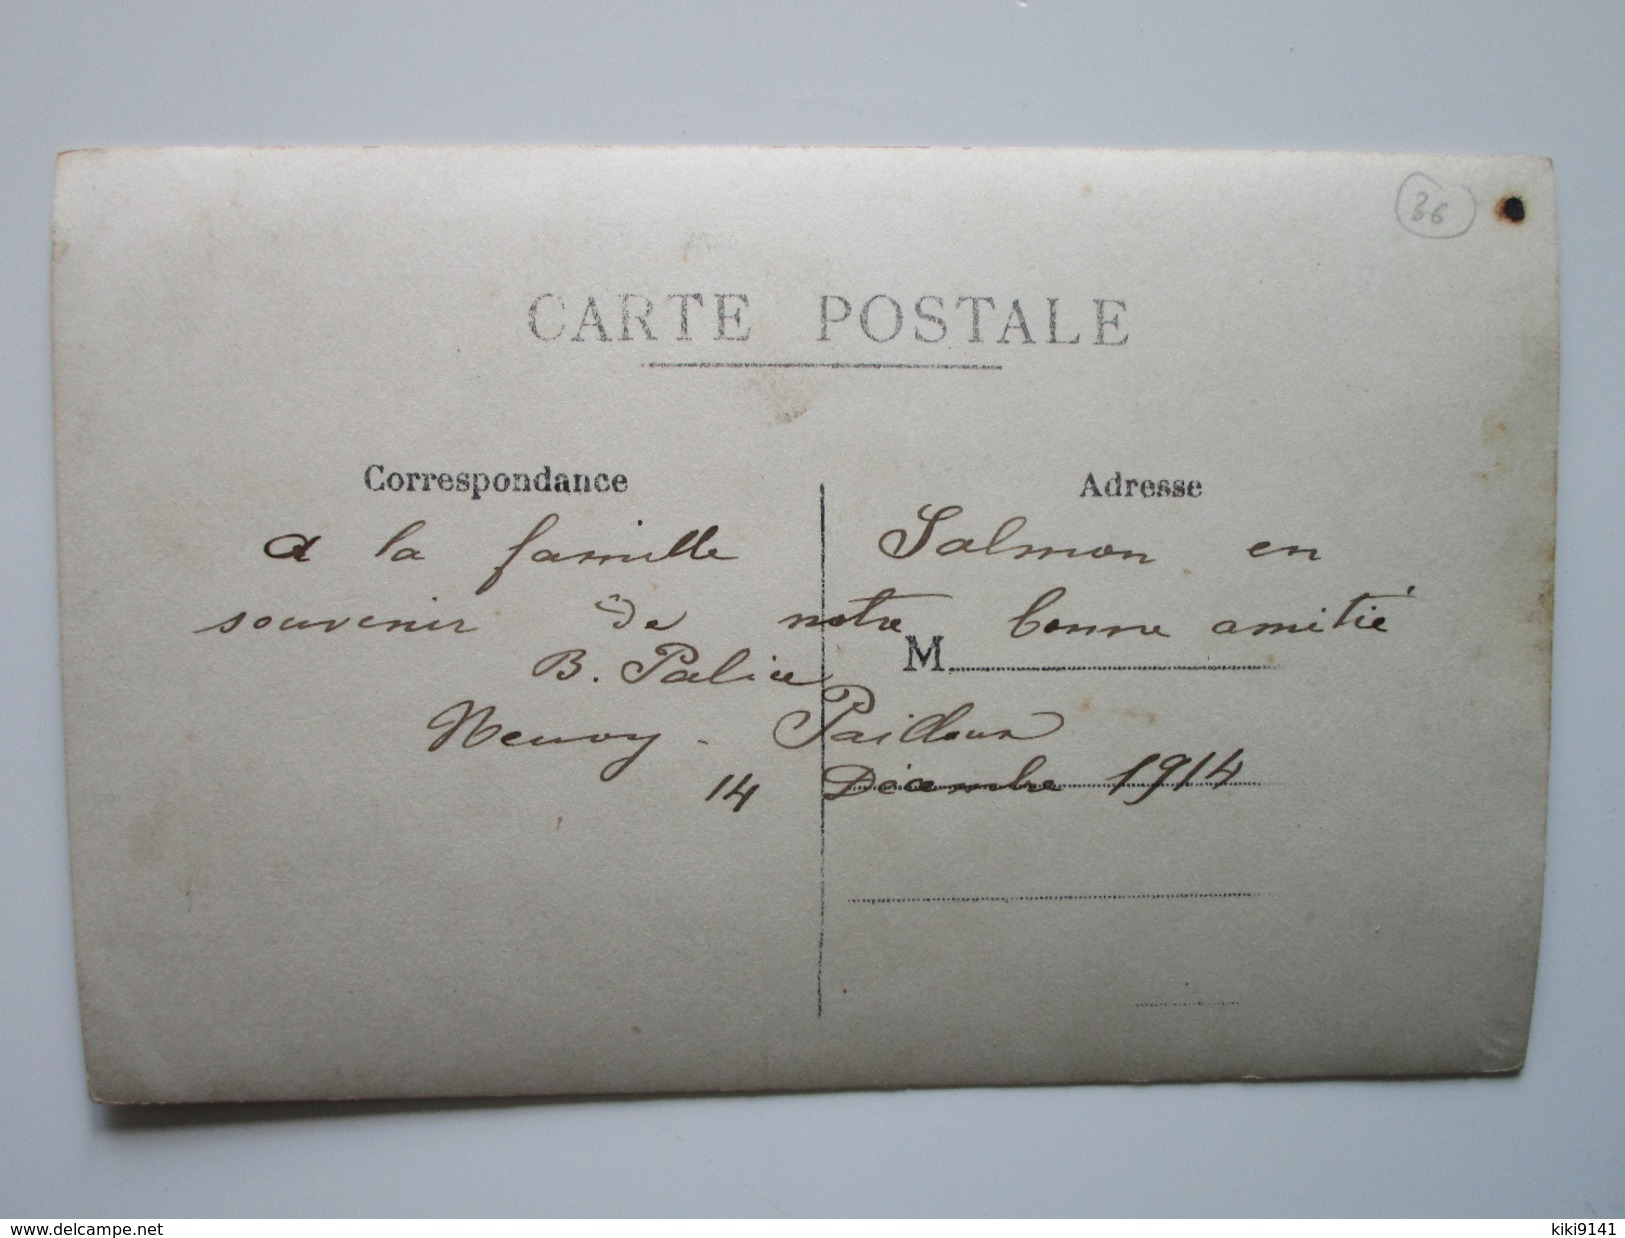 36
CARTE POSTALE
Correspondance
Adresse
A la famille Salmon en
souvenir de notre bonne amitié
M
B. Palice
Neuvy - Pailloux
14 Décembre 1914
www.delcampe.net
kiki9141